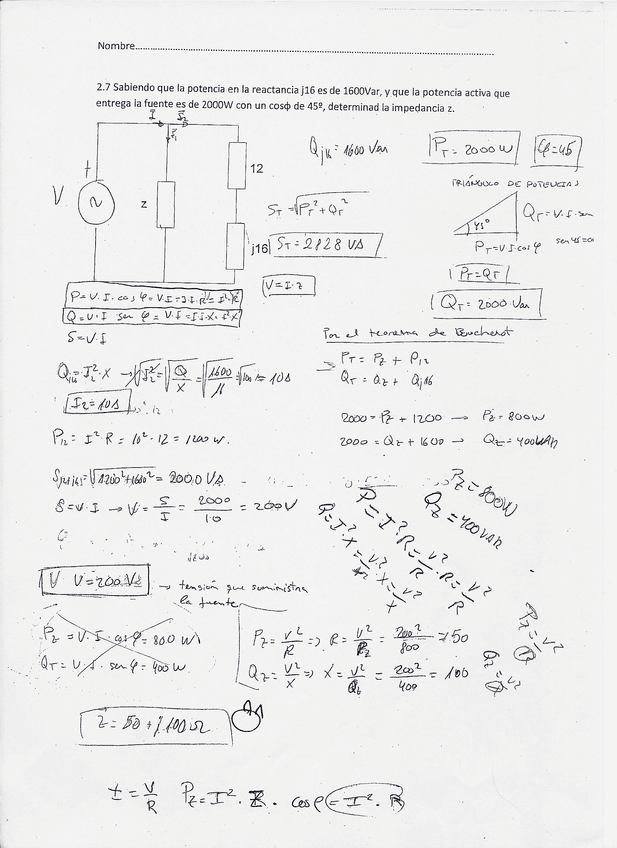 Nombre
2.7 Sabiendo que la potencia en la reactancia j16 es de 1600Var, y que la potencia activa que
entrega la fuente es de 2000W con un cosφ de 45º, determinad la impedancia z.
I
Qj16 = 1600 Var
PT = 2000 W
φ=45
V
z
12
j16
TRIÁNGULO DE POTENCIAS
45°
QT = V·I·sen
PT = V·I·cos φ
ST = √PT² + QT²
ST = 2828 VA
V = I·z
PT = QT
QT = 2000 Var
Q = V·I sen φ
S = V·I
Por el teorema de Boucherot
PT = PZ + P12
QT = QZ + Qj16
Qj16 = I2²·X → √I2² = √Q/X = √1600/16 = √100 = 10A
I2 = 10A
2000 = PZ + 1200 → PZ = 800W
2000 = QZ + 1600 → QZ = 400VAR
P12 = I²·R = 10²·12 = 1200 W.
= √1200² + 1600² = 2000 VA
S = V·I → V = S/I = 2000/10 = 200V
PZ = 800W
QZ = 400VAR
V = 200V
→ tensión que suministra
la fuente
PZ = V·I cos φ = 800 W
QT = V·I· sen φ = 400 W
PZ = V²/R ⇒ R = V²/PZ = 200²/800 = 50
QZ = V²/X ⇒ X = V²/QZ = 200²/400 = 100
Z = 50 + j100Ω
I = V/R PZ = I²·Z· cos φ = I²·R